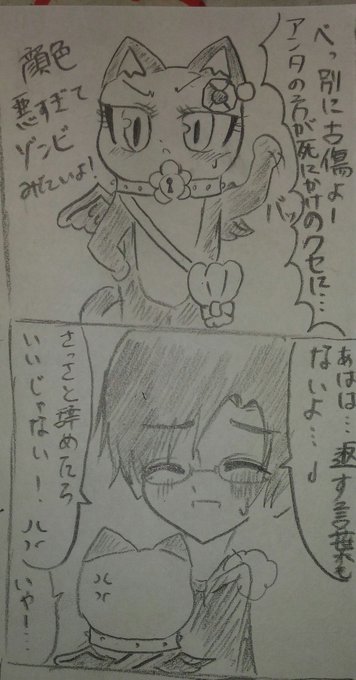 べっ別に古傷よー
アンタの方が死にかけのクセに…
バッ
顔色
悪すぎて
ゾンビ
みていよ!
あはは…返す言葉も
ないよ…♩
さっさと辞めたら
いいじゃないー!
いやー…